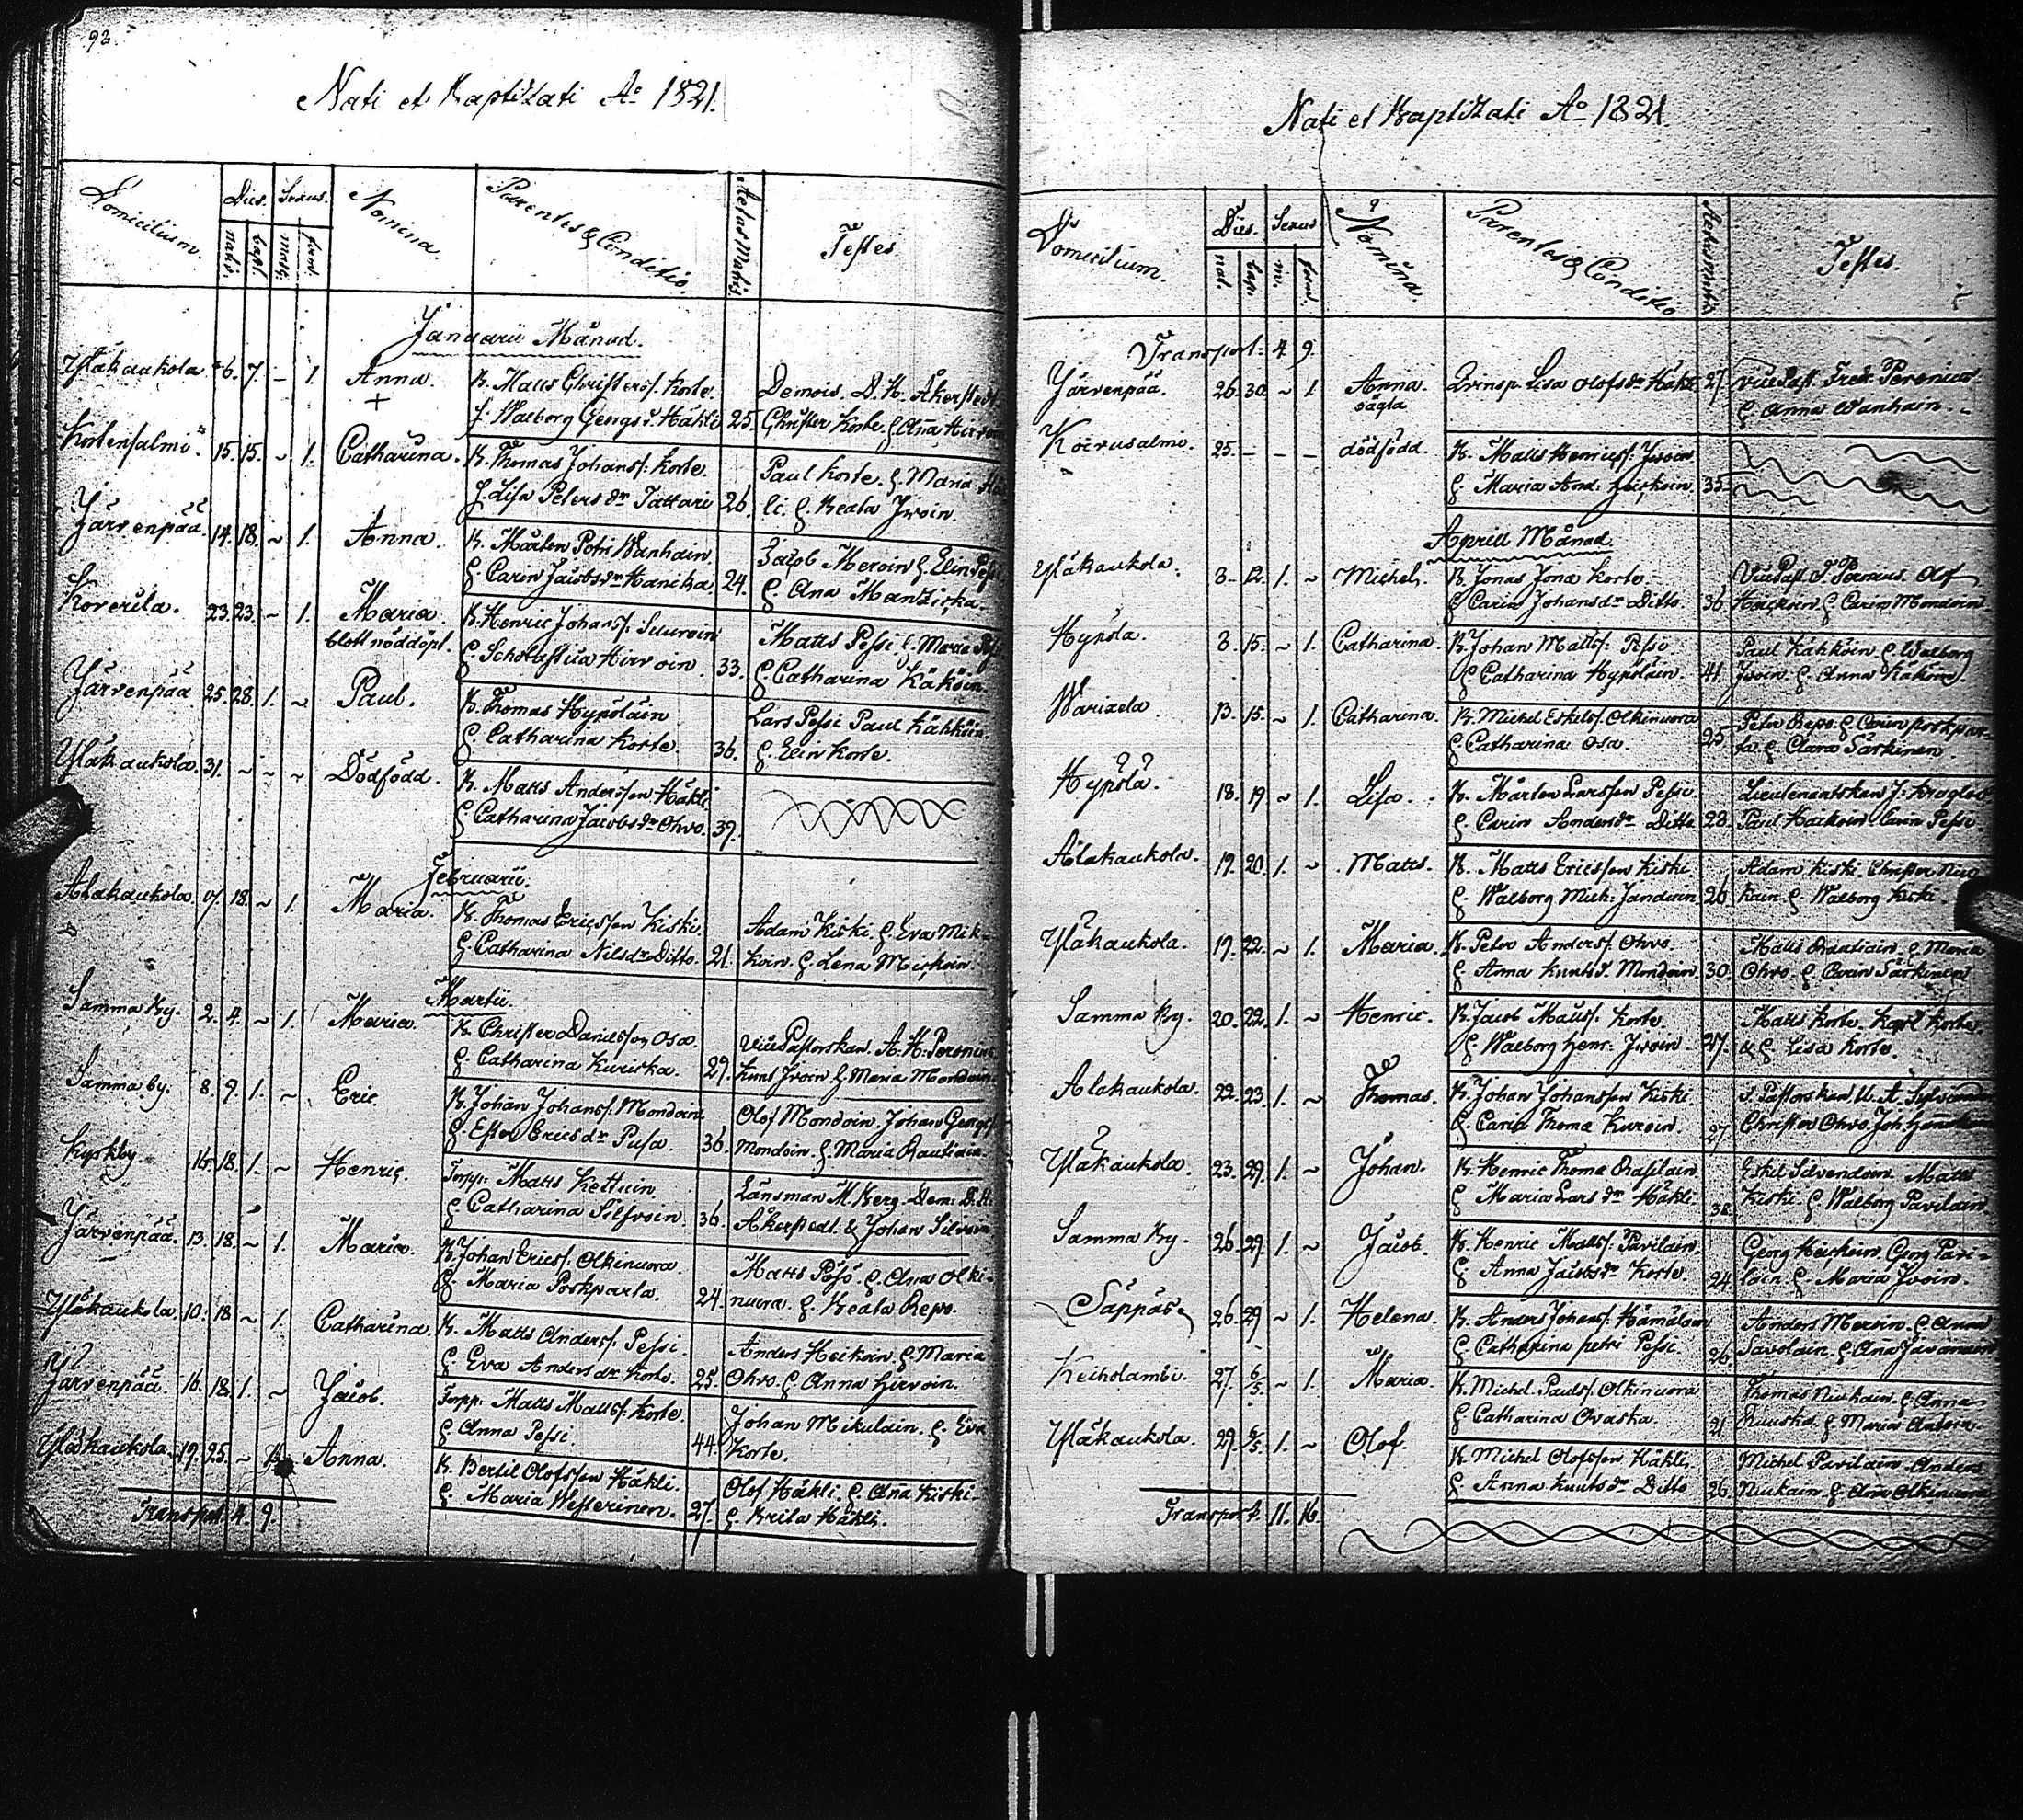 92
Nati et Baptizati Ao 1821.
Domicilium. Dies. Sexus. Nomina. Parentes & Conditio. Aetas Matris Testes
nati. bapt. masc. foem.
Januarii Månad.
Yläkaukola 6. 7. – 1. Anna. B. Matts Christersf. Korte. Demois. D. H. Åkerstedt
+ H. Walborg Georgsd. Häkli 25. Christer Korte. H. Ana
Kortensalmi 15. 15. ~ 1. Catharina. B. Thomas Johansf. Korte. Paul Korte. H. Maria
H. Lisa Petersdr Tattari 26. H. Beata Iwoin.
Järvenpää. 14. 18. ~ 1. Anna. B. Mårten Petri Wanhain. Jacob Meroin H. Elin
H. Carin Jacobsdr Hanikka 24. H. Ana
Koverila. 23. 23. ~ 1. Maria. B. Henric Johansf.
blott nöddöpt. H. Hirvoin 33. Matts Pessi H. Maria
H. Catharina Käköin.
Järvenpää 25. 28. 1. ~ Paul. B. Thomas Hypöläin Lars Pessi Paul Kähköin
H. Catharina Korte. 36. H. Elin Korte.
Yläkaukola. 31. ~ ~ ~ Dödfödd. B. Matts Andersson Häkli
H. Catharina Jacobsdr Ohvo. 39.
Februarii.
Alakaukola 17. 18. ~ 1. Maria. B. Thomas Ericsson Kiski Adam Kiski H. Eva Mik-
H. Catharina Nilsdr Ditto. 21. koin. H. Lena
Martii.
Samma By. 2. 4. ~ 1. Maria. B. Christer Danielsson Osa. VicePastorskan A. H. Peronius
H. Catharina 29. Knut Iwoin H. Maria Mondoin
Samma by. 8. 9. 1. ~ Eric. B. Johan Johansf. Mondoin Olof Mondoin. Johan Georgsf.
H. Ester Ericsdr Pusa. 36. Mondoin. H. Maria Rautiain.
Kyrkby 16. 18. 1. ~ Henric. Torpp. Matts Kettuin Länsman M. Berg. Dem: D. H.
H. Catharina Silfvoin. 36. Åkerstedt. & Johan
Järvenpää. 13. 18. ~ 1. Maria. B. Johan Ericsf. Olkinuora. Matts Pösö. H. Ana Olki-
H. Maria Porkparta. 24. nuora. H. Beata Repo.
Yläkaukola. 10. 18 ~ 1. Catharina. B. Matts Andersf. Pessi. Anders Heikoin. H. Maria
H. Eva Andersdr Korte. 25 Ohvo. H. Anna Hirvoin.
Järvenpää. 16. 18. 1. ~ Jacob. Torpp: Matts Mattsf. Korte. Johan Mikulain. H. Eva
H. Anna Pessi. 44. Korte.
Yläkaukola. 19. 25. ~ Anna. B. Bertil Olofsson Häkli. Olof Häkli. H. Ana Kiski
H. Maria Westerinen. 27. H. Brita Häkli.
Transport. 4. 9.
Nati et Baptizati Ao 1821.
Domicilium. Dies. Sexus Nomina. Parentes & Conditio Aetas matris Testes.
nat. bap. m. foem.
Transport: 4. 9.
Järvenpää. 26. 30. ~ 1. Anna Qvinsp. Lisa Olofsdr Häkli 27. VicePast. Fredr. Peronius
oägta H. Anna Wanhain.
Koivusalmi. 25. – – – dödfödd. B. Matts Henricsf. Iwoin
H. Maria And: 35.
Aprill Månad.
Yläkaukola. 8. 12. 1. ~ Michel. B. Jonas Jona Korte VicePast. F. Peronius. Olof
H. Carin Johansdr Ditto. 36. H. Carin Mondoin
Hypölä. 8. 15. ~ 1. Catharina. B. Johan Mattsf. Pessi Paul Kähköin H. Walborg
H. Catharina Hypöläin. 41. Iwoin. H. Anna Käköin.
13. 15. ~ 1. Catharina. B. Michel Eskelsf. Olkinuora Peter Repo. H. Carin Porkpar-
H. Catharina Osa. 25. ta. H. Clara Särkinen
Hypölä. 18. 19 ~ 1. Lisa. B. Mårten Larsson Pessi. Lieutenantskan J.
H. Carin Andersdr Ditto 23 Paul Carin Pessi.
Alakaukola. 19. 20. 1. ~ Matts. B. Matts Ericsson Kiski Adam Kiski Christer Niu-
H. Walborg Mich: Janduin 26 kain. H. Walborg Kiski.
Yläkaukola. 19. 22. ~ 1. Maria. B. Peter Andersf. Ohvo. Matts Rautiain. H. Maria
H. Anna Knutsd. Mondoin 30. Ohvo. H. Carin Särkinen
Samma By. 20. 22. 1. ~ Henric. B. Jacob Mattsf. Korte. Matts Korte. Karl Korte
H. Walborg Henr: Iwoin 27. & H. Lisa Korte.
Alakaukola. 22. 23. 1. ~ Thomas. B. Johan Johansson Kiski. Pastorskan U. A.
H. Carin Thoma Kuroin. 27. Christer Ohvo. Joh.
Yläkaukola. 23. 29. 1. ~ Johan. B. Henric Thoma Rasilain. Eskil Silvendoin. Matts
H. Maria Larsdr Häkli 38. Kiski H. Walborg Pavilain
Samma By. 26. 29. 1. ~ Jacob. B. Henric Mattsf. Pavilain. Georg Heickoin. Georg Pavi-
H. Anna Jacobsdr Korte. 24 lain H. Maria Iwoin.
Säppäs 26. 29 ~ 1. Helena. B. Anders Johansf. Hämäläin Anders Meroin. H. Anna
H. Catharina petri Pessi. 26. Savolain. H. Ana
Keiholambi. 27. 6/5. ~ 1. Maria. B. Michel Paulsf. Olkinuora Thomas Niukain. H. Anna
H. Catharina Ovaska. 21 Ruuska. H. Maria
Yläkaukola. 29. 6/5. 1. ~ Olof. B. Michel Olofsson Häkli. Michel Pavilain. Anders
H. Anna Knutsdr Ditto 26 Niukain. H. Ana Olkinuora
Transport. 11. 16.